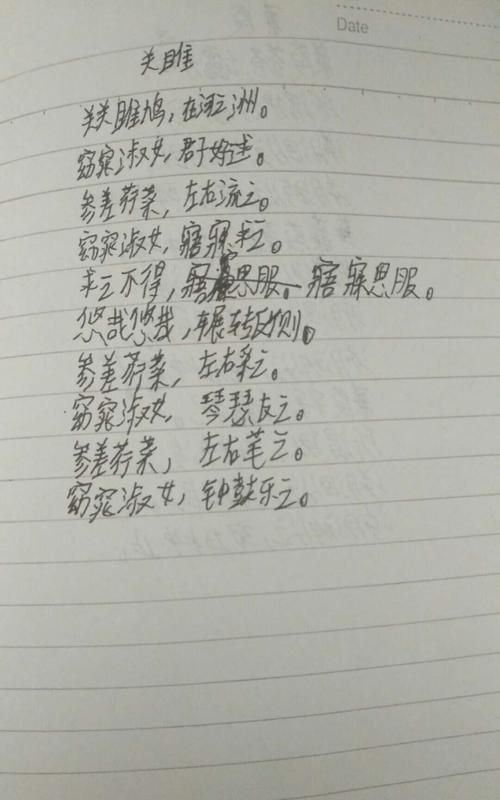 Date
关雎
关关雎鸠,在河之洲。
窈窕淑女,君子好逑。
参差荇菜,左右流之。
窈窕淑女,寤寐求之。
求之不得,寤寐思服。寤寐思服。
悠哉悠哉,辗转反侧。
参差荇菜,左右采之。
窈窕淑女 琴瑟友之。
参差荇菜,左右芼之。
窈窕淑女,钟鼓乐之。